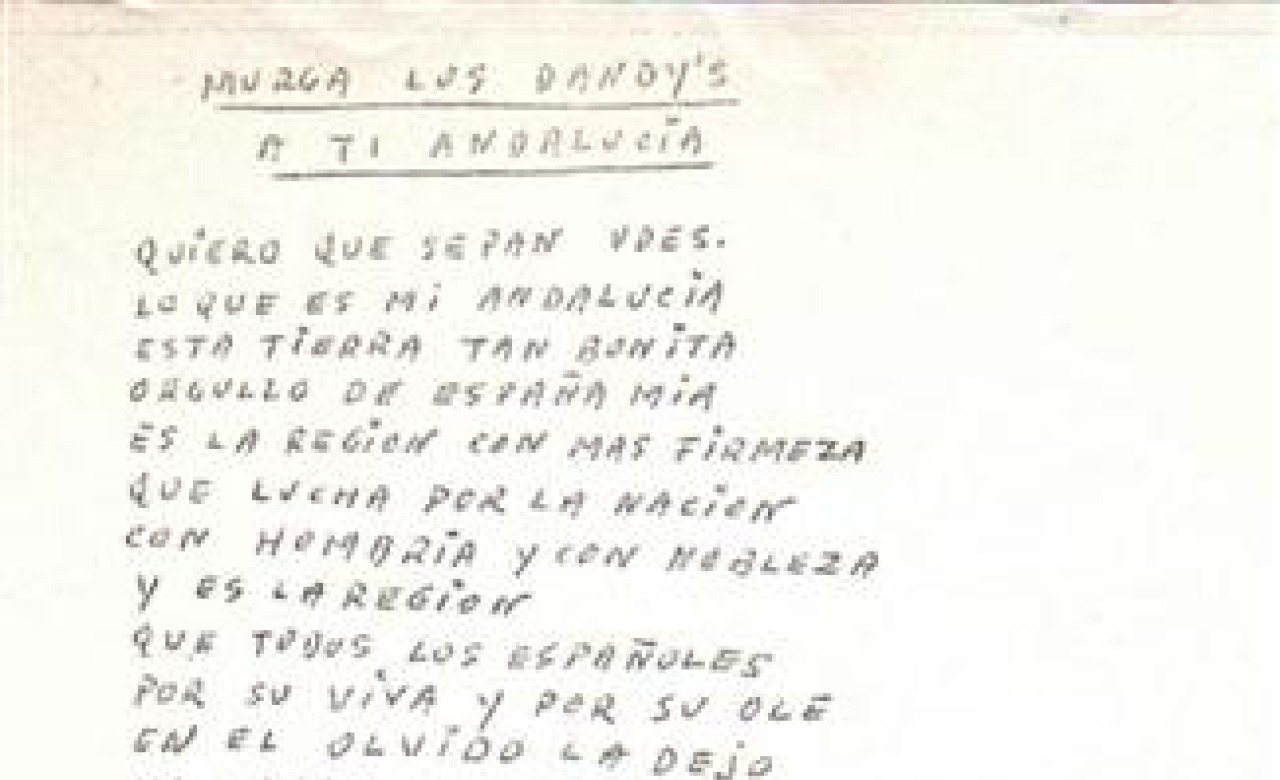 MURGA LOS DANDY'S
A TI ANDALUCÍA
QUIERO QUE SEPAN UDES.
LO QUE ES MI ANDALUCIA
ESTA TIERRA TAN BONITA
ORGULLO DE ESPAÑA MIA
ES LA REGION CON MAS FIRMEZA
QUE LUCHA POR LA NACION
CON HOMBRÍA Y CON NOBLEZA
Y ES LA REGION
QUE TODOS LOS ESPAÑOLES
POR SU VIVA Y POR SU OLE
EN EL OLVIDO LA DEJO